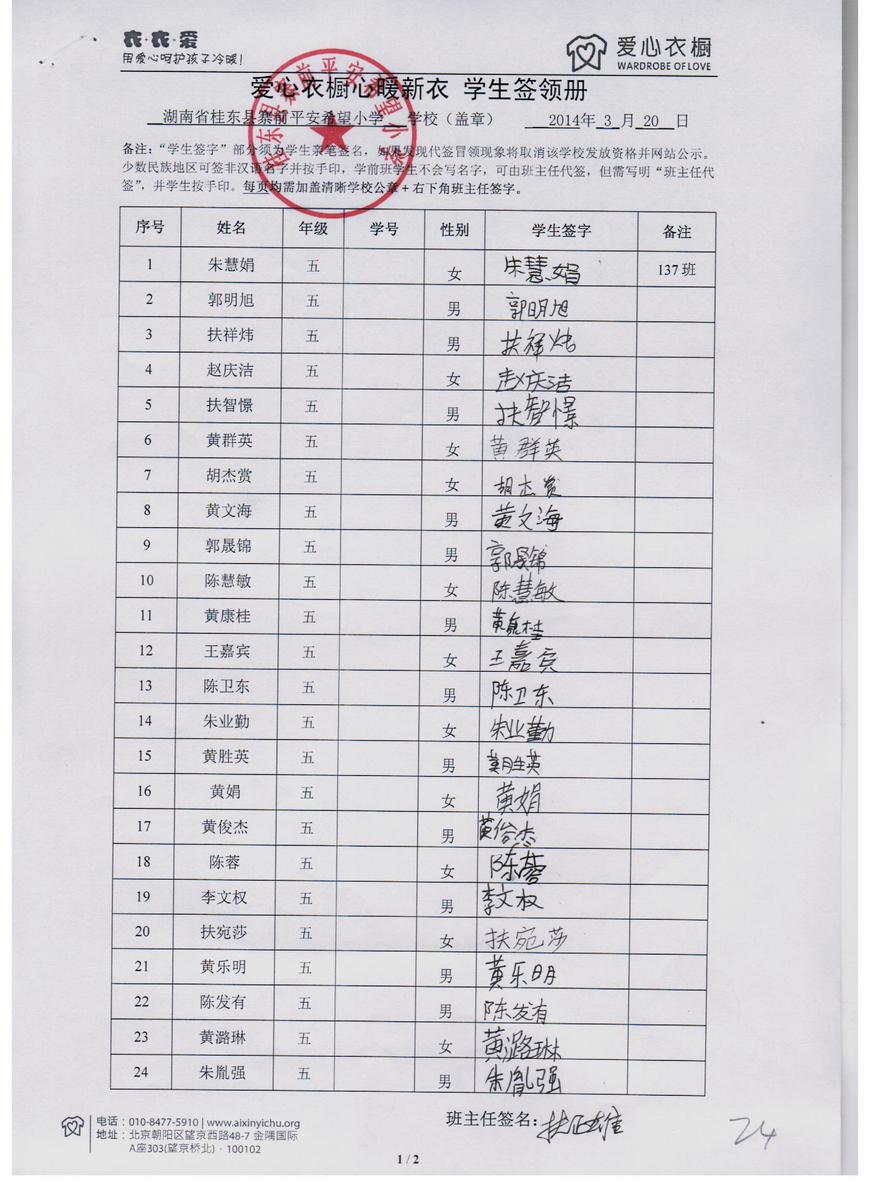 衣·衣·爱
用爱心呵护孩子冷暖!
爱心衣橱
WARDROBE OF LOVE
爱心衣橱心暖新衣 学生签领册
湖南省桂东县寨前平安希望小学 学校(盖章) 2014年 3 月 20 日
桂东县寨前平安希望小学
备注:“学生签字”部分须为学生亲笔签名,如果发现代签冒领现象将取消该学校发放资格并网站公示。
少数民族地区可签非汉语名字并按手印,学前班学生不会写名字,可由班主任代签,但需写明“班主任代
签”,并学生按手印。每页均需加盖清晰学校公章+右下角班主任签字。
序号 姓名 年级 学号 性别 学生签字 备注
1 朱慧娟 五 女 朱慧娟 137班
2 郭明旭 五 男 郭明旭
3 扶祥炜 五 男 扶祥炜
4 赵庆洁 五 女 赵庆洁
5 扶智憬 五 男 扶智憬
6 黄群英 五 女 黄群英
7 胡杰赏 五 女 胡杰赏
8 黄文海 五 男 黄文海
9 郭晟锦 五 男 郭晟锦
10 陈慧敏 五 女 陈慧敏
11 黄康桂 五 男 黄康桂
12 王嘉宾 五 女 王嘉宾
13 陈卫东 五 男 陈卫东
14 朱业勤 五 女 朱业勤
15 黄胜英 五 男 黄胜英
16 黄娟 五 女 黄娟
17 黄俊杰 五 男 黄俊杰
18 陈蓉 五 女 陈蓉
19 李文权 五 男 李文权
20 扶宛莎 五 女 扶宛莎
21 黄乐明 五 男 黄乐明
22 陈发有 五 男 陈发有
23 黄潞琳 五 女 黄潞琳
24 朱胤强 五 男 朱胤强
班主任签名:
24
电话:010-8477-5910 | www.aixinyichu.org
地址:北京朝阳区望京西路48-7 金隅国际
A座303(望京桥北)· 100102
1 / 2